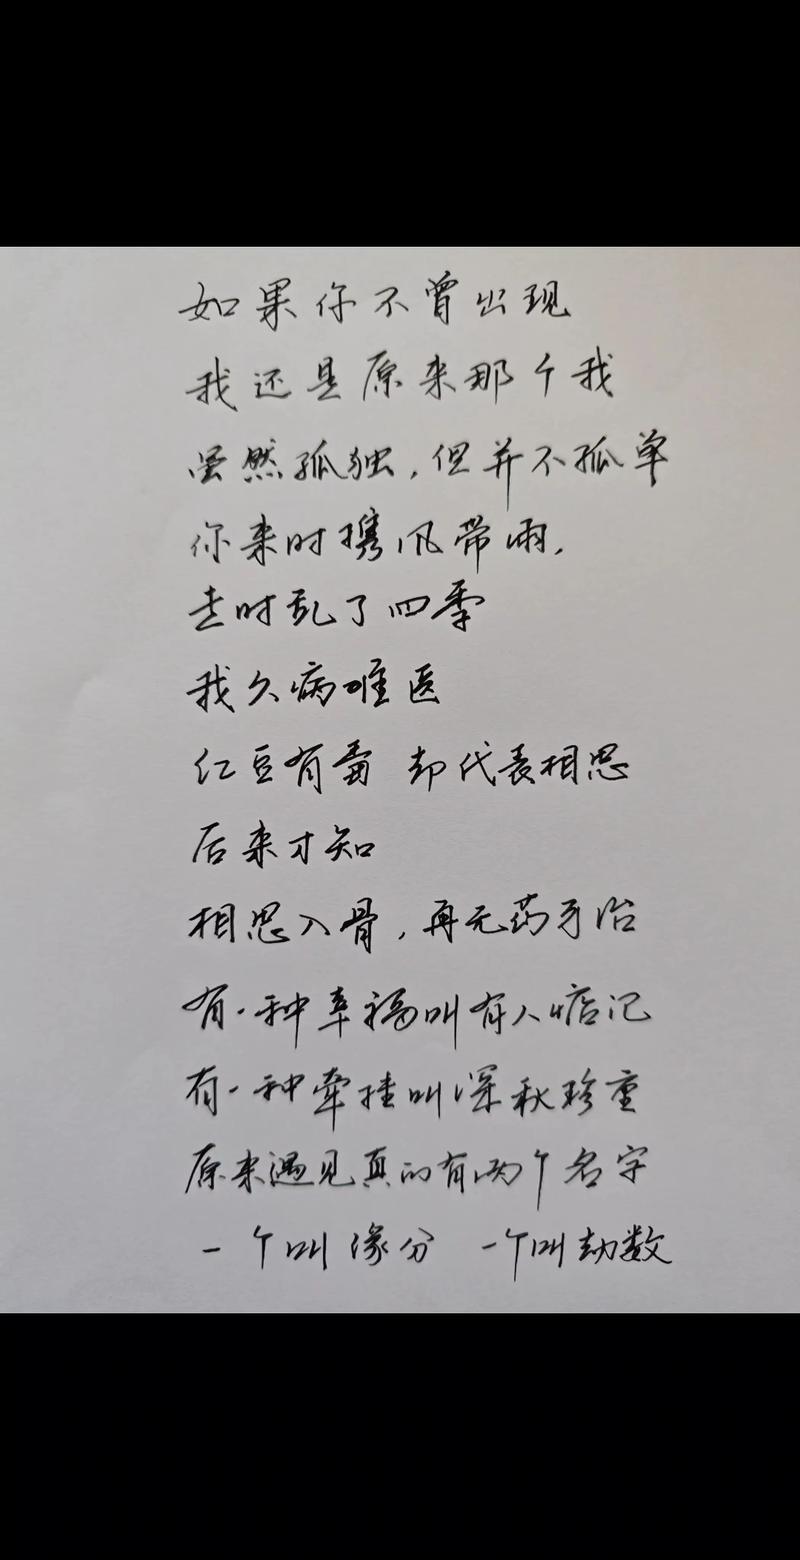 如果你不曾出现
我还是原来那个我
虽然孤独,但并不孤单
你来时携风带雨,
走时乱了四季
我久病难医
红豆有毒 却代表相思
后来才知
相思入骨,再无药可治
有一种幸福叫有人惦记
有一种牵挂叫深秋珍重
原来遇见真的有两个名字
一个叫缘分 一个叫劫数